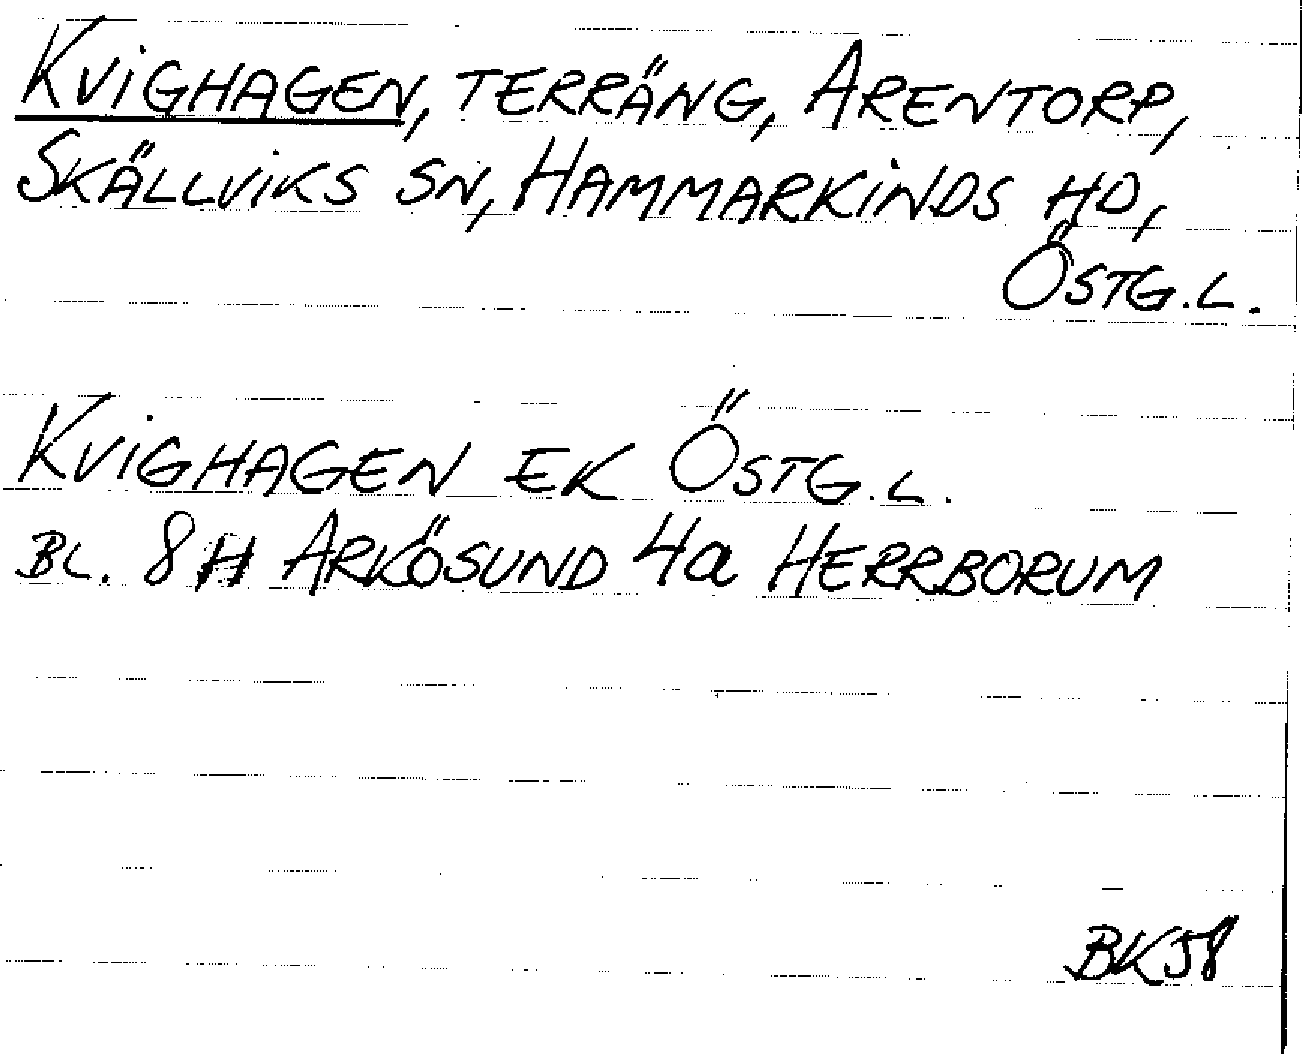 KVIGHAGEN, TERRÄNG, ARENTORP,
SKÄLLVIKS SN, HAMMARKINDS HD,
ÖSTG.L.
KVIGHAGEN EK ÖSTG.L.
BL. 8 H ARKÖSUND 4a HERRBORUM
BK58